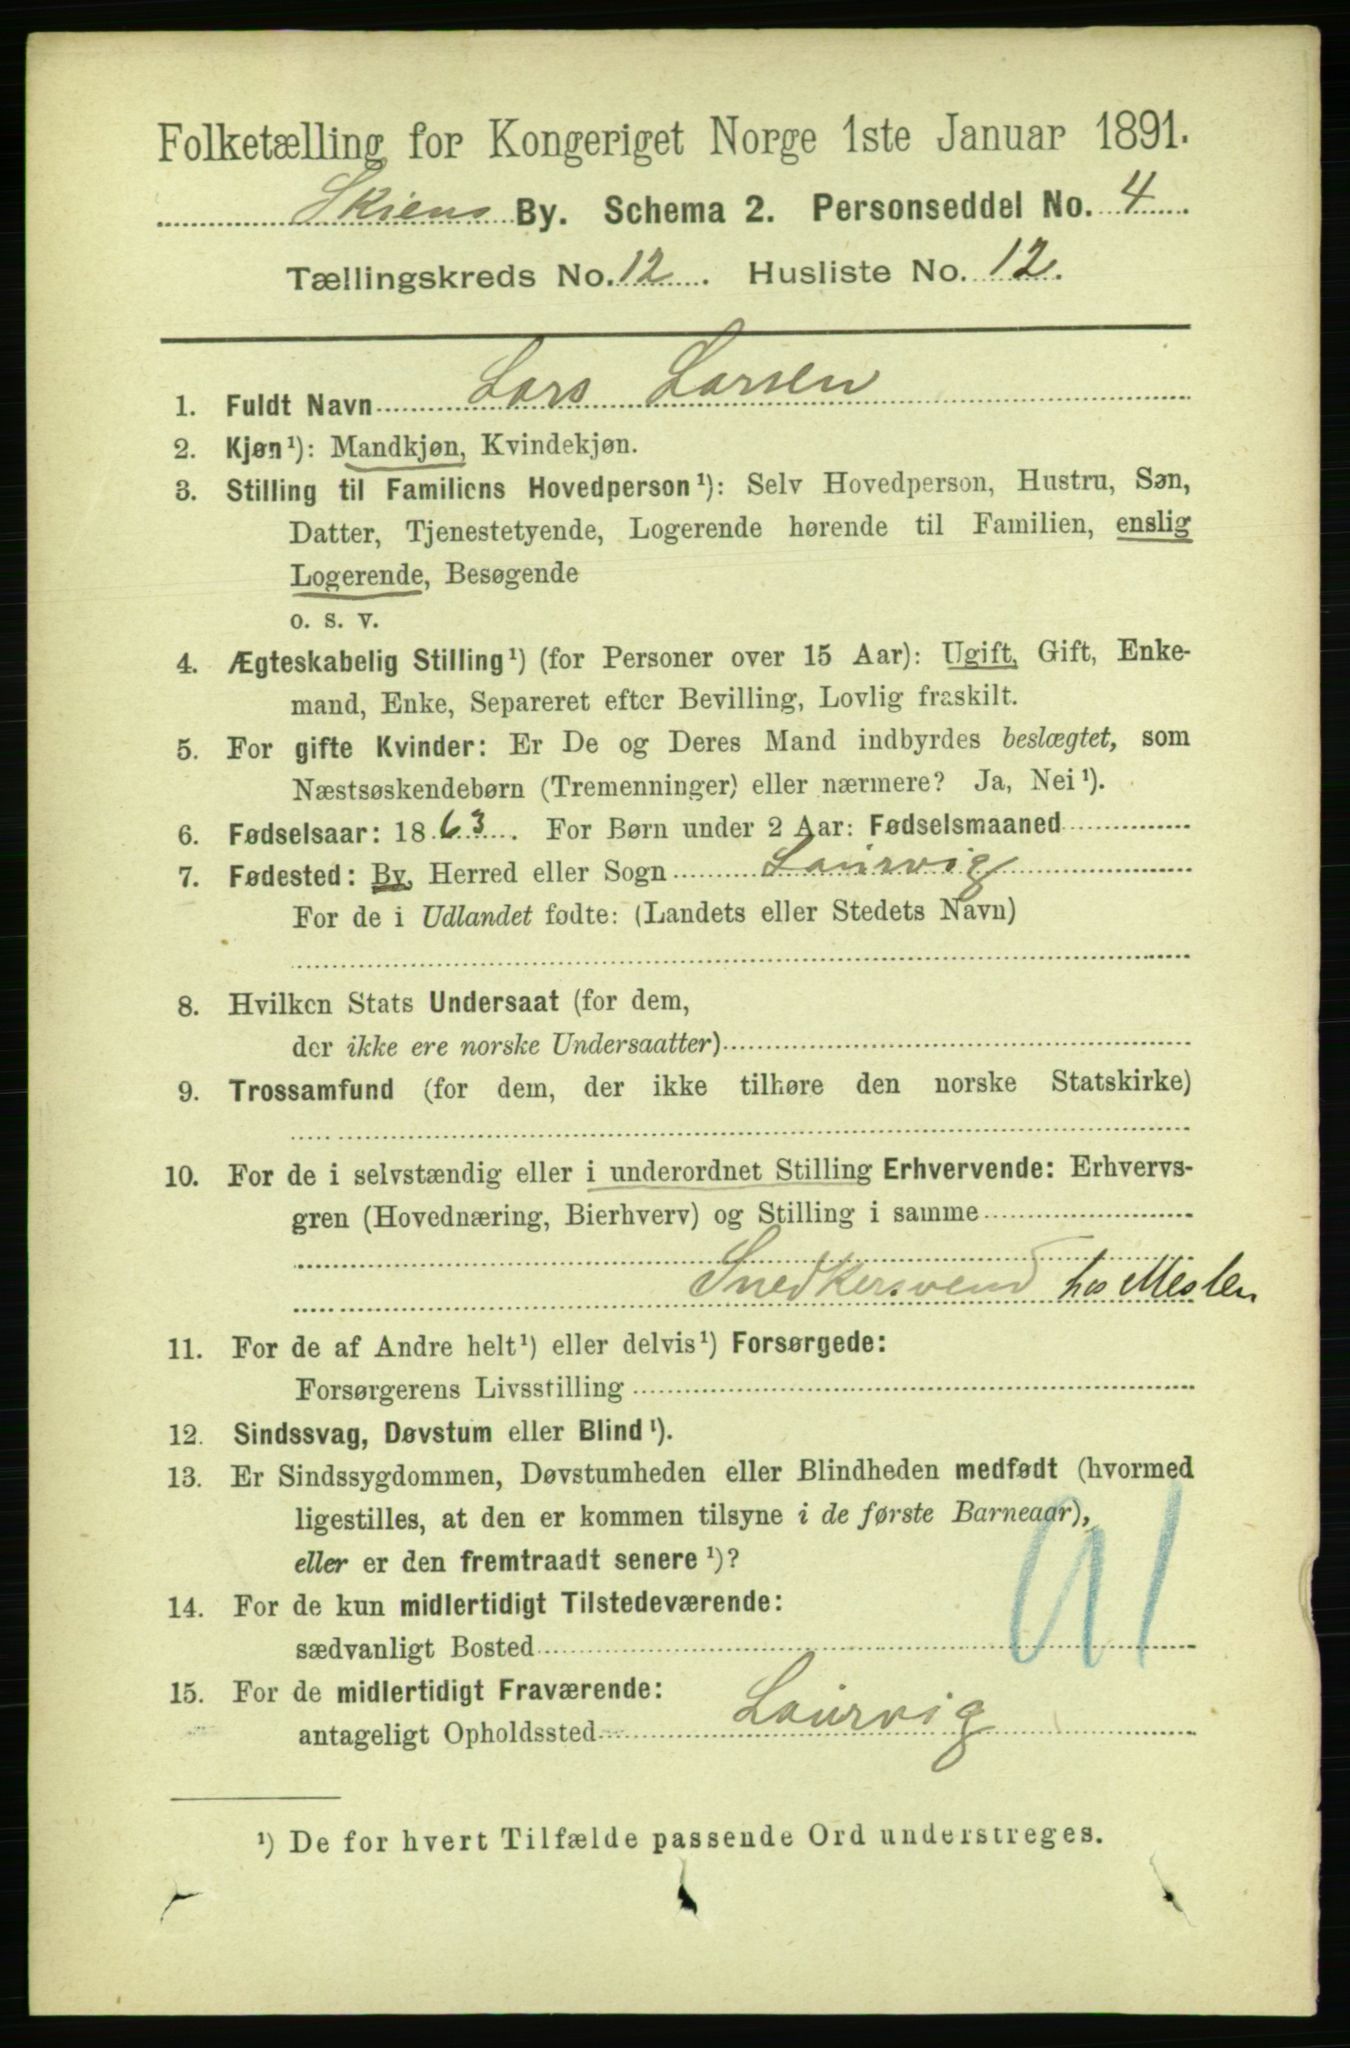 Folketælling for Kongeriget Norge 1ste Januar 1891.
Skiens By. Schema 2. Personseddel No. 4
Tællingskreds No. 12. Husliste No. 12.
1. Fuldt Navn Lars Larsen
2. Kjøn¹): Mandkjøn, Kvindekjøn.
3. Stilling til Familiens Hovedperson¹): Selv Hovedperson, Hustru, Søn,
Datter, Tjenestetyende, Logerende hørende til Familien, enslig
Logerende, Besøgende
o. s. v.
4. Ægteskabelig Stilling¹) (for Personer over 15 Aar): Ugift, Gift, Enke-
mand, Enke, Separeret efter Bevilling, Lovlig fraskilt.
5. For gifte Kvinder: Er De og Deres Mand indbyrdes beslægtet, som
Næstsøskendebørn (Tremenninger) eller nærmere? Ja, Nei¹).
6. Fødselsaar: 1863. For Børn under 2 Aar: Fødselsmaaned
7. Fødested: By, Herred eller Sogn Laurvig
For de i Udlandet fødte: (Landets eller Stedets Navn)
8. Hvilken Stats Undersaat (for dem,
der ikke ere norske Undersaatter)
9. Trossamfund (for dem, der ikke tilhøre den norske Statskirke)
10. For de i selvstændig eller i underordnet Stilling Erhvervende: Erhvervs-
gren (Hovednæring, Bierhverv) og Stilling i samme
Snedkersvend hos Mesten
11. For de af Andre helt¹) eller delvis¹) Forsørgede:
Forsørgerens Livsstilling
12. Sindssvag, Døvstum eller Blind¹).
13. Er Sindssygdommen, Døvstumheden eller Blindheden medfødt (hvormed
ligestilles, at den er kommen tilsyne i de første Barneaar),
eller er den fremtraadt senere¹)?
14. For de kun midlertidigt Tilstedeværende:
sædvanligt Bosted
15. For de midlertidigt Fraværende:
antageligt Opholdssted Laurvig
¹) De for hvert Tilfælde passende Ord understreges.